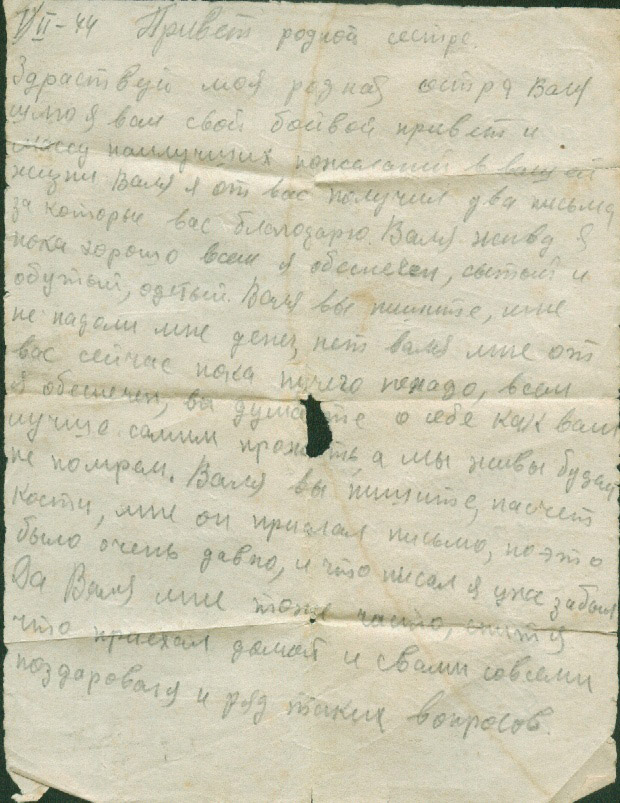 II-44 Привет родной сестре.
Здраствуй моя родная остря Валя
шлю я вам свой боевой привет и
массу наилучших пожеланий в вашей
жизни Валя я от вас получил два письма
за которые вас благодарю. Валя живу я
пока хорошо всем я обеспечен, сытый и
обутый, одетый. Валя вы пишите, мне
не надали мне денег, нет валя мне от
вас сейчас пока ничего ненадо, всем
я обеспечен, вы думайте о себе как вам
лучше самим прожить, а мы живы будем
не помрем. Валя вы пишите, насчет
Кости, мне он прислал письмо, но это
было очень давно, и что писал я уже забыл
Да Валя мне тоже часто, снится
что приехал домой и свами совсеми
поздаровался и ряд таких вопросов.